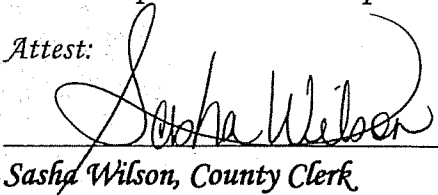 Attest:
Sasha Wilson
Sasha Wilson, County Clerk